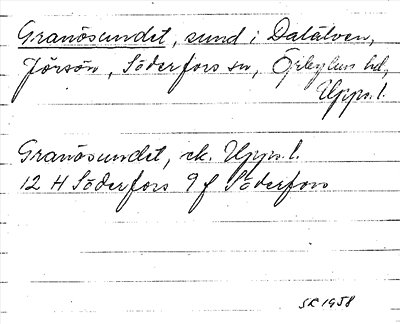 Granösundet, sund i Dalälven,
Jörsön, Söderfors sn, Örbyhus hd,
Upps. l.
Granösundet, ek. Upps. l.
12 H Söderfors 9 f Söderfors
SK 1958